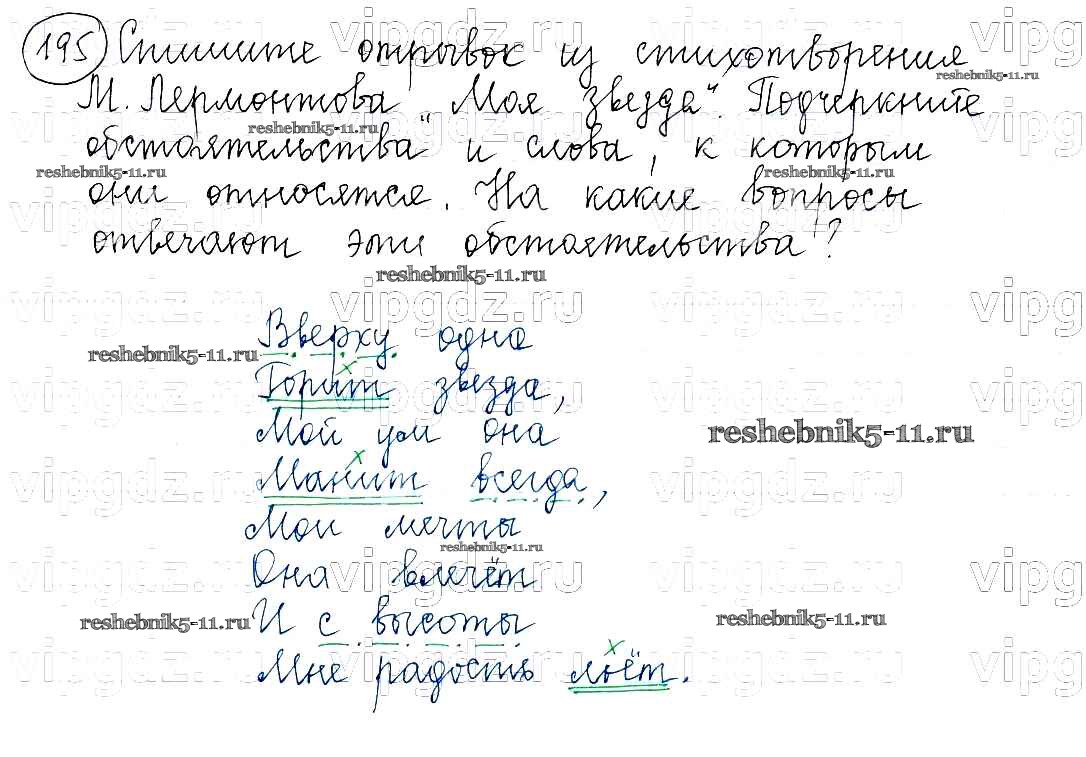 195 Спишите отрывок из стихотворения
М. Лермонтова „Моя звезда“. Подчеркните
обстоятельства и слова, к которым
они относятся. На какие вопросы
отвечают эти обстоятельства?
Вверху одна
Горит звезда,
Мой ум она
Манит всегда,
Мои мечты
Она влечёт
И с высоты
Мне радость льёт.
reshebnik5-11.ru
vipgdz.ru